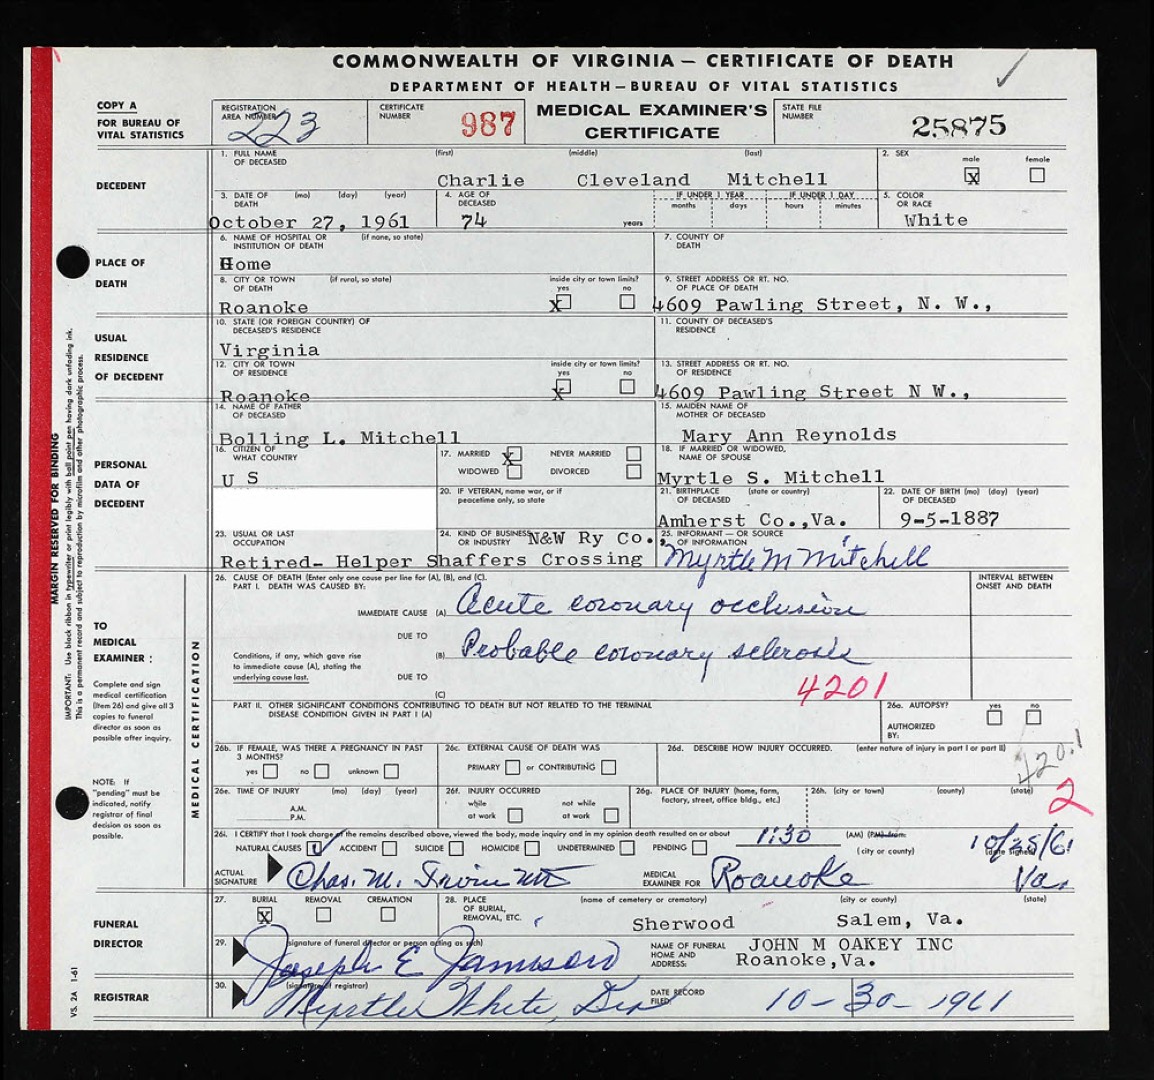 COMMONWEALTH OF VIRGINIA — CERTIFICATE OF DEATH
DEPARTMENT OF HEALTH — BUREAU OF VITAL STATISTICS
COPY A
FOR BUREAU OF
VITAL STATISTICS
REGISTRATION
AREA NUMBER
223
CERTIFICATE
NUMBER
987
MEDICAL EXAMINER'S
CERTIFICATE
STATE FILE
NUMBER
25875
DECEDENT
1. FULL NAME
OF DECEASED
(first) (middle) (last)
Charlie Cleveland Mitchell
2. SEX
male female
X
3. DATE OF (mo) (day) (year)
DEATH
October 27, 1961
4. AGE OF
DECEASED
74 years
IF UNDER 1 YEAR IF UNDER 1 DAY
months days hours minutes
5. COLOR
OR RACE
White
PLACE OF
DEATH
6. NAME OF HOSPITAL OR (if none, so state)
INSTITUTION OF DEATH
Home
7. COUNTY OF
DEATH
8. CITY OR TOWN (if rural, so state)
OF DEATH
inside city or town limits?
yes no
Roanoke X
9. STREET ADDRESS OR RT. NO.
OF PLACE OF DEATH
4609 Pawling Street, N. W.,
USUAL
RESIDENCE
OF DECEDENT
10. STATE (OR FOREIGN COUNTRY) OF
DECEASED'S RESIDENCE
Virginia
11. COUNTY OF DECEASED'S
RESIDENCE
12. CITY OR TOWN
OF RESIDENCE
inside city or town limits?
yes no
Roanoke X
13. STREET ADDRESS OR RT. NO.
OF RESIDENCE
4609 Pawling Street N W.,
PERSONAL
DATA OF
DECEDENT
14. NAME OF FATHER
OF DECEASED
Bolling L. Mitchell
15. MAIDEN NAME OF
MOTHER OF DECEASED
Mary Ann Reynolds
16. CITIZEN OF
WHAT COUNTRY
U S
17. MARRIED X NEVER MARRIED
WIDOWED DIVORCED
18. IF MARRIED OR WIDOWED,
NAME OF SPOUSE
Myrtle S. Mitchell
20. IF VETERAN, name war, or if
peacetime only, so state
21. BIRTHPLACE (state or country)
OF DECEASED
Amherst Co.,Va.
22. DATE OF BIRTH (mo) (day) (year)
OF DECEASED
9-5-1887
23. USUAL OR LAST
OCCUPATION
Retired- Helper
24. KIND OF BUSINESS
OR INDUSTRY
N&W Ry Co.,
Shaffers Crossing
25. INFORMANT — OR SOURCE
OF INFORMATION
Myrtle M Mitchell
MARGIN RESERVED FOR BINDING
IMPORTANT: Use black ribbon in typewriter or print legibly with ball point pen having dark unfading ink.
This is a permanent record and subject to reproduction by microfilm and other photographic process.
TO
MEDICAL
EXAMINER:
Complete and sign
medical certification
(Item 26) and give all 3
copies to funeral
director as soon as
possible after inquiry.
NOTE: If
"pending" must be
indicated, notify
registrar of final
decision as soon as
possible.
MEDICAL CERTIFICATION
26. CAUSE OF DEATH (Enter only one cause per line for (A), (B), and (C).
PART I. DEATH WAS CAUSED BY:
INTERVAL BETWEEN
ONSET AND DEATH
IMMEDIATE CAUSE (A) Acute coronary occlusion
DUE TO
Conditions, if any, which gave rise
to immediate cause (A), stating the
underlying cause last.
(B) Probable coronary sclerosis
DUE TO
(C)
4201
PART II. OTHER SIGNIFICANT CONDITIONS CONTRIBUTING TO DEATH BUT NOT RELATED TO THE TERMINAL
DISEASE CONDITION GIVEN IN PART I (A)
26a. AUTOPSY? yes no
AUTHORIZED
BY:
26b. IF FEMALE, WAS THERE A PREGNANCY IN PAST
3 MONTHS?
yes no unknown
26c. EXTERNAL CAUSE OF DEATH WAS
PRIMARY or CONTRIBUTING
26d. DESCRIBE HOW INJURY OCCURRED. (enter nature of injury in part I or part II)
420.1
2
26e. TIME OF INJURY (mo) (day) (year)
A.M.
P.M.
26f. INJURY OCCURRED
while not while
at work at work
26g. PLACE OF INJURY (home, farm,
factory, street, office bldg., etc.)
26h. (city or town) (county) (state)
26i. I CERTIFY that I took charge of the remains described above, viewed the body, made inquiry and in my opinion death resulted on or about 1:30 (AM) (PM) from:
NATURAL CAUSES ACCIDENT SUICIDE HOMICIDE UNDETERMINED PENDING
(city or county) (date signed)
ACTUAL
SIGNATURE
Chas. M. Irvin MD
MEDICAL
EXAMINER FOR
Roanoke Va.
FUNERAL
DIRECTOR
27. BURIAL REMOVAL CREMATION
X
28. PLACE
OF BURIAL,
REMOVAL, ETC.
(name of cemetery or crematory) (city or county) (state)
Sherwood Salem, Va.
29. (signature of funeral director or person acting as such)
Joseph E Jamison
NAME OF FUNERAL
HOME AND
ADDRESS:
JOHN M OAKEY INC
Roanoke,Va.
REGISTRAR
30. (signature of registrar)
Myrtle White, Dep
DATE RECORD
FILED:
10-30-1961
VS. 2A 1-61